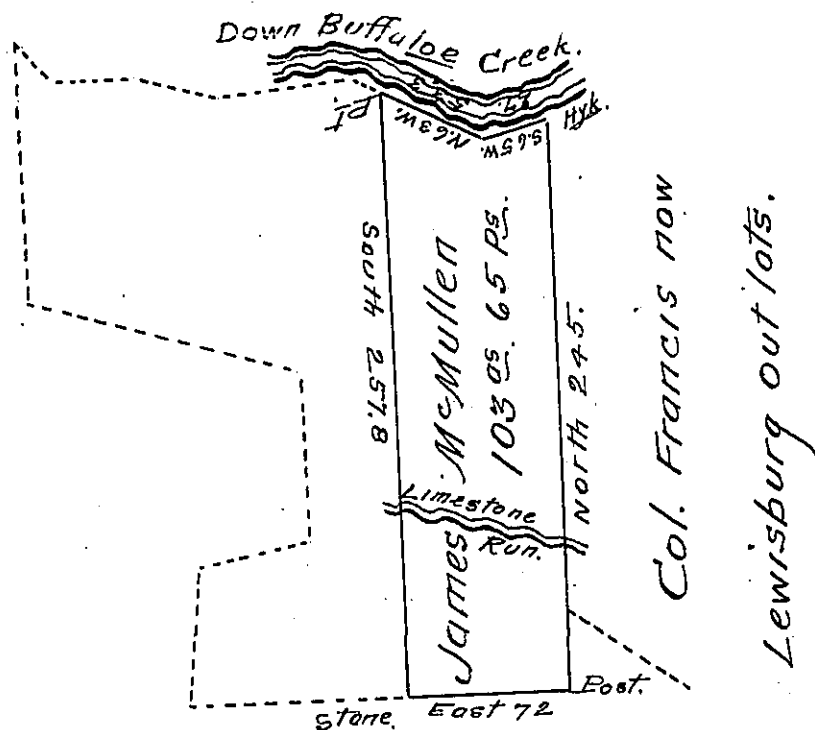 Down Buffaloe Creek.
Pt.
N.63W.
S.65W.
Hyk.
South 257.8
James McMullen
103 as. 65 Ps.
North 245.
Limestone
Run.
Col. Francis now
Lewisburg out lots.
Stone.
East 72
Post.